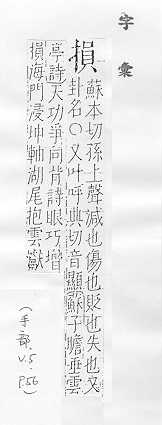 字彙
損
蘇本切孫上聲減也傷也貶也失也又
卦名〇又叶呼典切音顯蘇子瞻垂雲
亭詩天功爭向背詩眼巧增
損海門浸坤軸湖尾抱雲巘
(手部.V.5.
P.56)